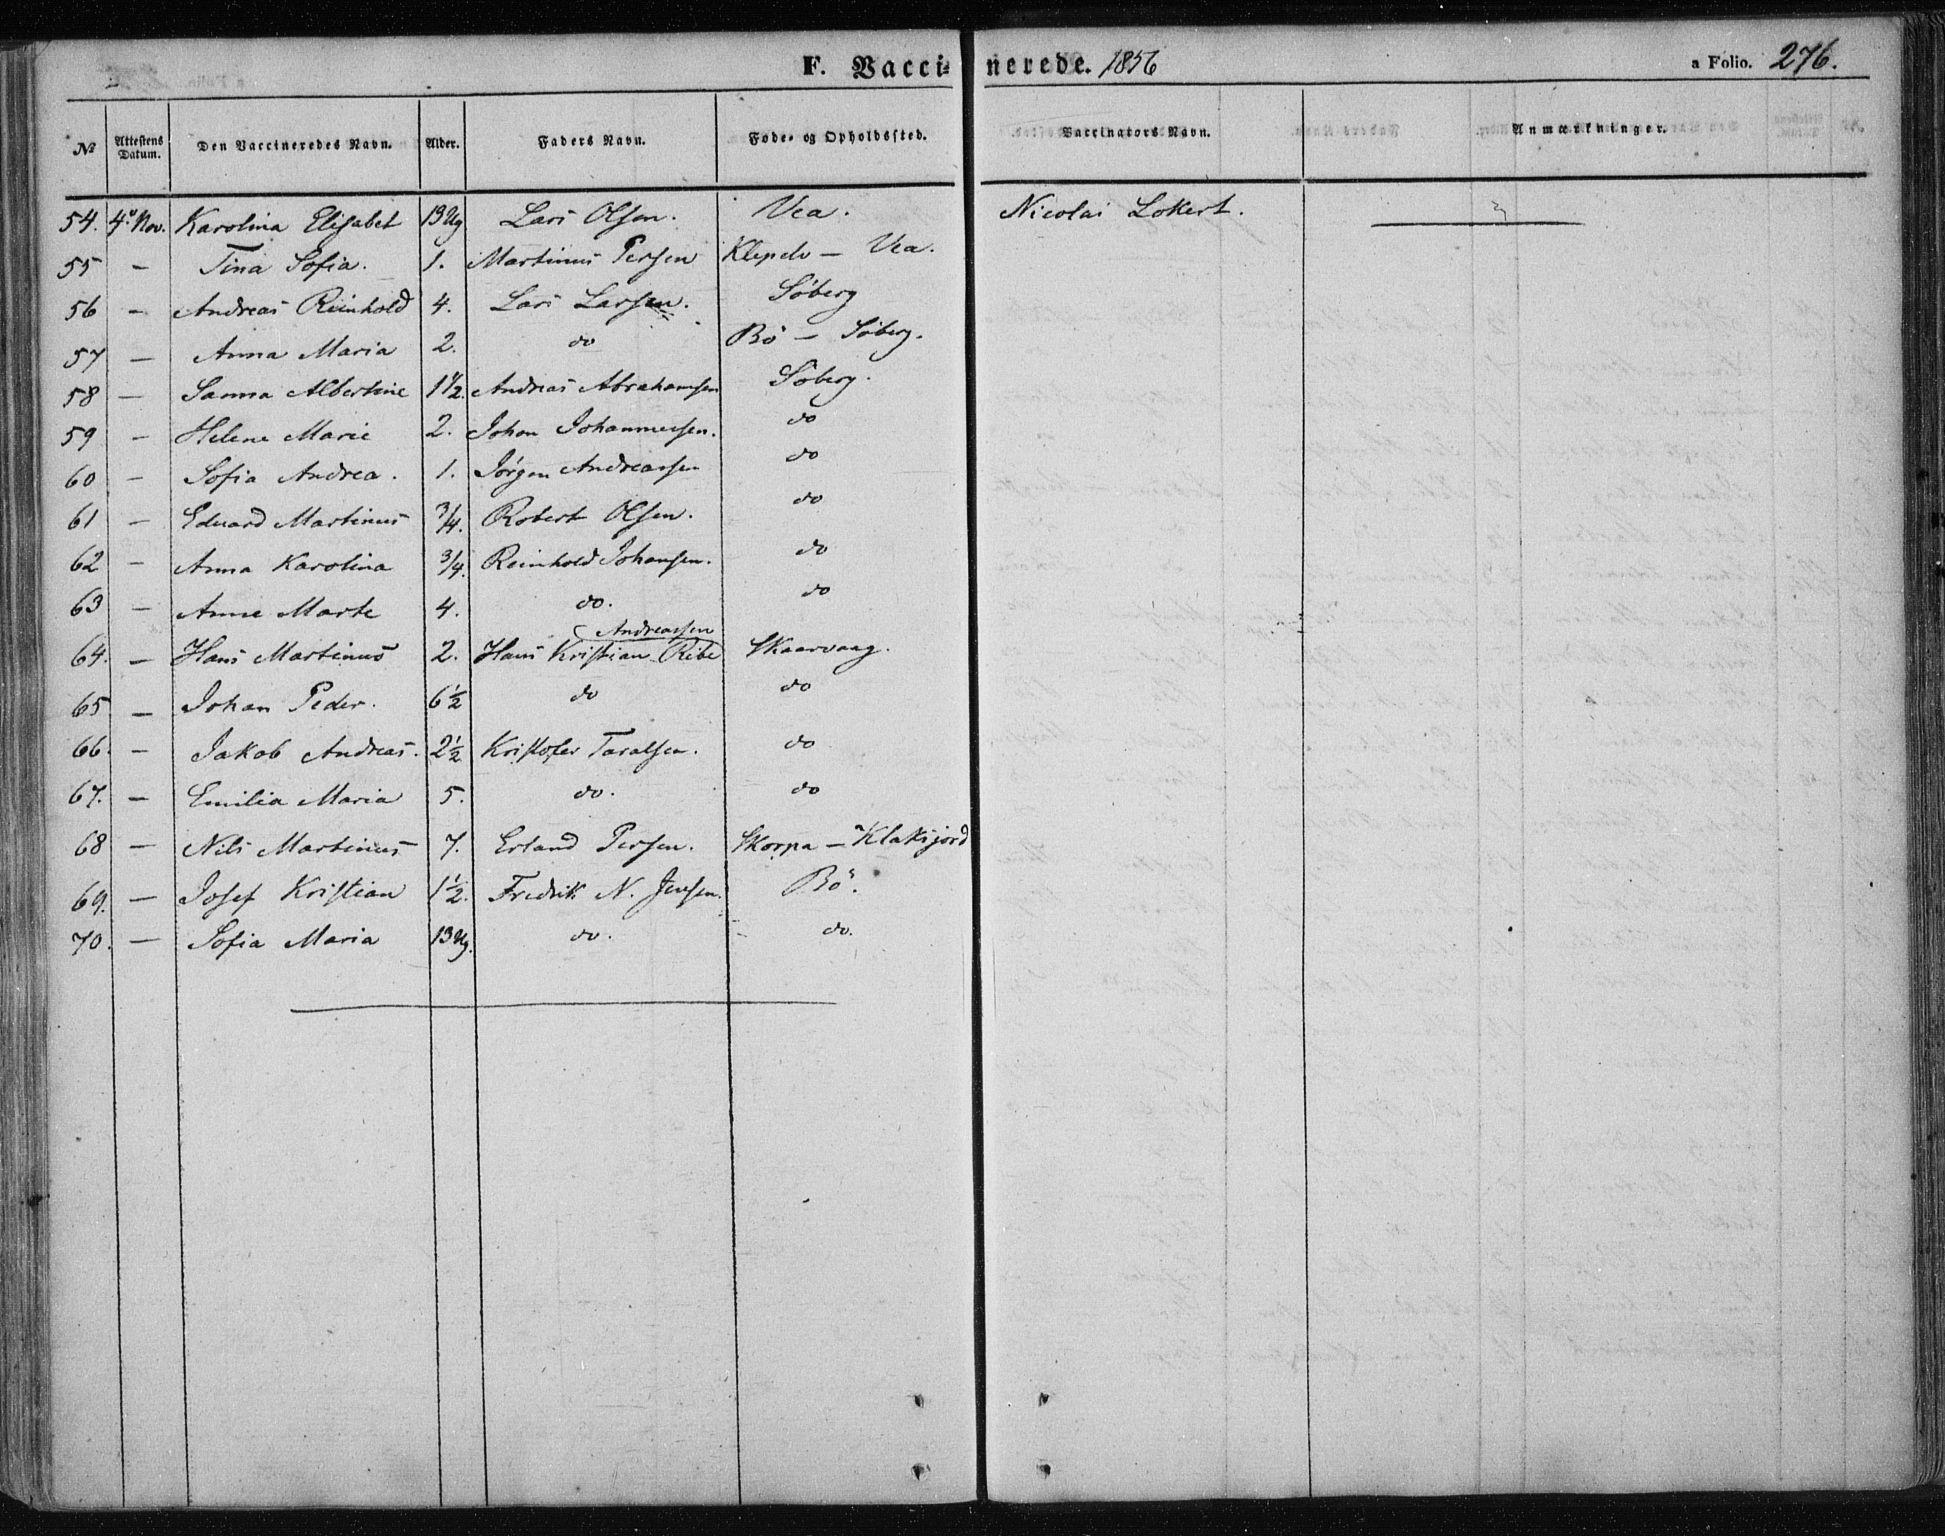 F. Vaccinerede. 1856 a Folio. 276.
№ Attestens Datum. Den Vaccineredes Navn. Alder. Faders Navn. Føde- og Opholdssted. Vaccinators Navn. Anmærkninger.
54. 4. Nov. Karolina Elisabet 13 Ug Lars Olsen. Vea. Nicolai Lokert.
55 - Tina Sofia. 1. Martinus Persen - Vea.
56 - Andreas Reinhold 4. Lars Larsen. Søberg
57 - Anna Maria 2. do Bö - Søberg.
58 - Sanna Albertine 1 1/2. Andreas Abrahamsen Søberg.
59 - Helene Marie 2. Johan Johannessen. do
60 - Sofia Andrea. 1. Jørgen Andreassen do
61 - Eduard Martinus 3/4. Robert Olsen. do
62 - Anna Karolina 3/4. Reinhold Johansen. do
63 - Anne Marte 4. do. do
Andreassen
64. - Hans Martinus 2. Hans Kristian Ribe Skaarvaag.
65 - Johan Peder. 6 1/2 do do
66. - Jakob Andreas. 2 1/2 Kristofer Taralsen. do
67. - Emilia Maria 5. do. do
68 - Nils Martinus 7. Erland Persen. Skorpa - Klaksjord
69. - Josef Kristian 1 1/2. Fredrik N. Jensen. Bö.
70. - Sofia Maria 13 Ug. do. do.